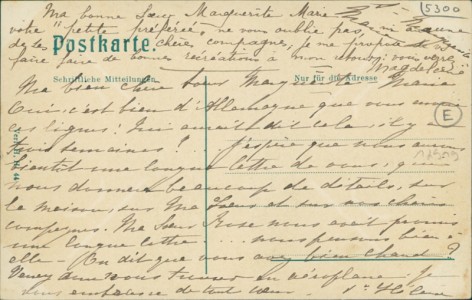 Ma bonne Sœur Marguerite Marie
votre "petite préférée" ne vous oublie pas, ni aucune
de tes chères compagnes, je me propose de vous
faire faire de bonnes récréations à mon
Magdeleine
5300
Postkarte.
Schriftliche Mitteilungen
Nur für die Adresse
Ma bien chère Sœur Marguerite Marie
Oui, c'est bien d'Allemagne que vous
ces lignes! Qui aurait dit cela il y a
trois semaines! J'espère que nous aurons
bientôt une longue lettre de vous, qui
nous donnera beaucoup de détails, sur
la maison, sur Ma Sœur et nos chères
compagnes. Ma Sœur Rose nous avait promis
une longue lettre nous pensons bien à
elle - On dit que vous avez bien chaud?
Venez nous trouver en aéroplane. Je
vous embrasse de tout cœur. Sr Hélène
E